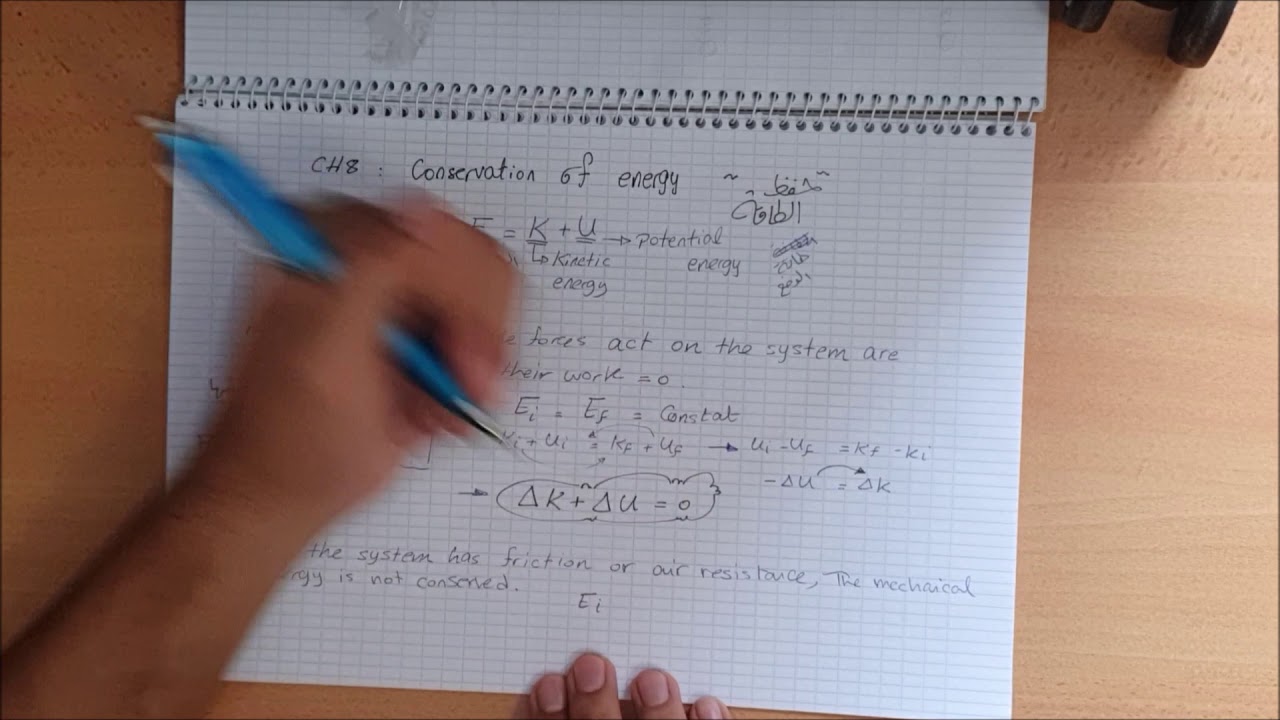 CH8 : Conservation of energy ~
الطاقة
E = K + U → Potential
↳ Kinetic energy
energy
forces act on the system are
their work = 0.
Ei = Ef = Constat
Ki + Ui = Kf + Uf → Ui - Uf = Kf - Ki
-ΔU = ΔK
→ ΔK + ΔU = 0
the system has friction or air resistance, The mechaical
is not conserved.
Ei